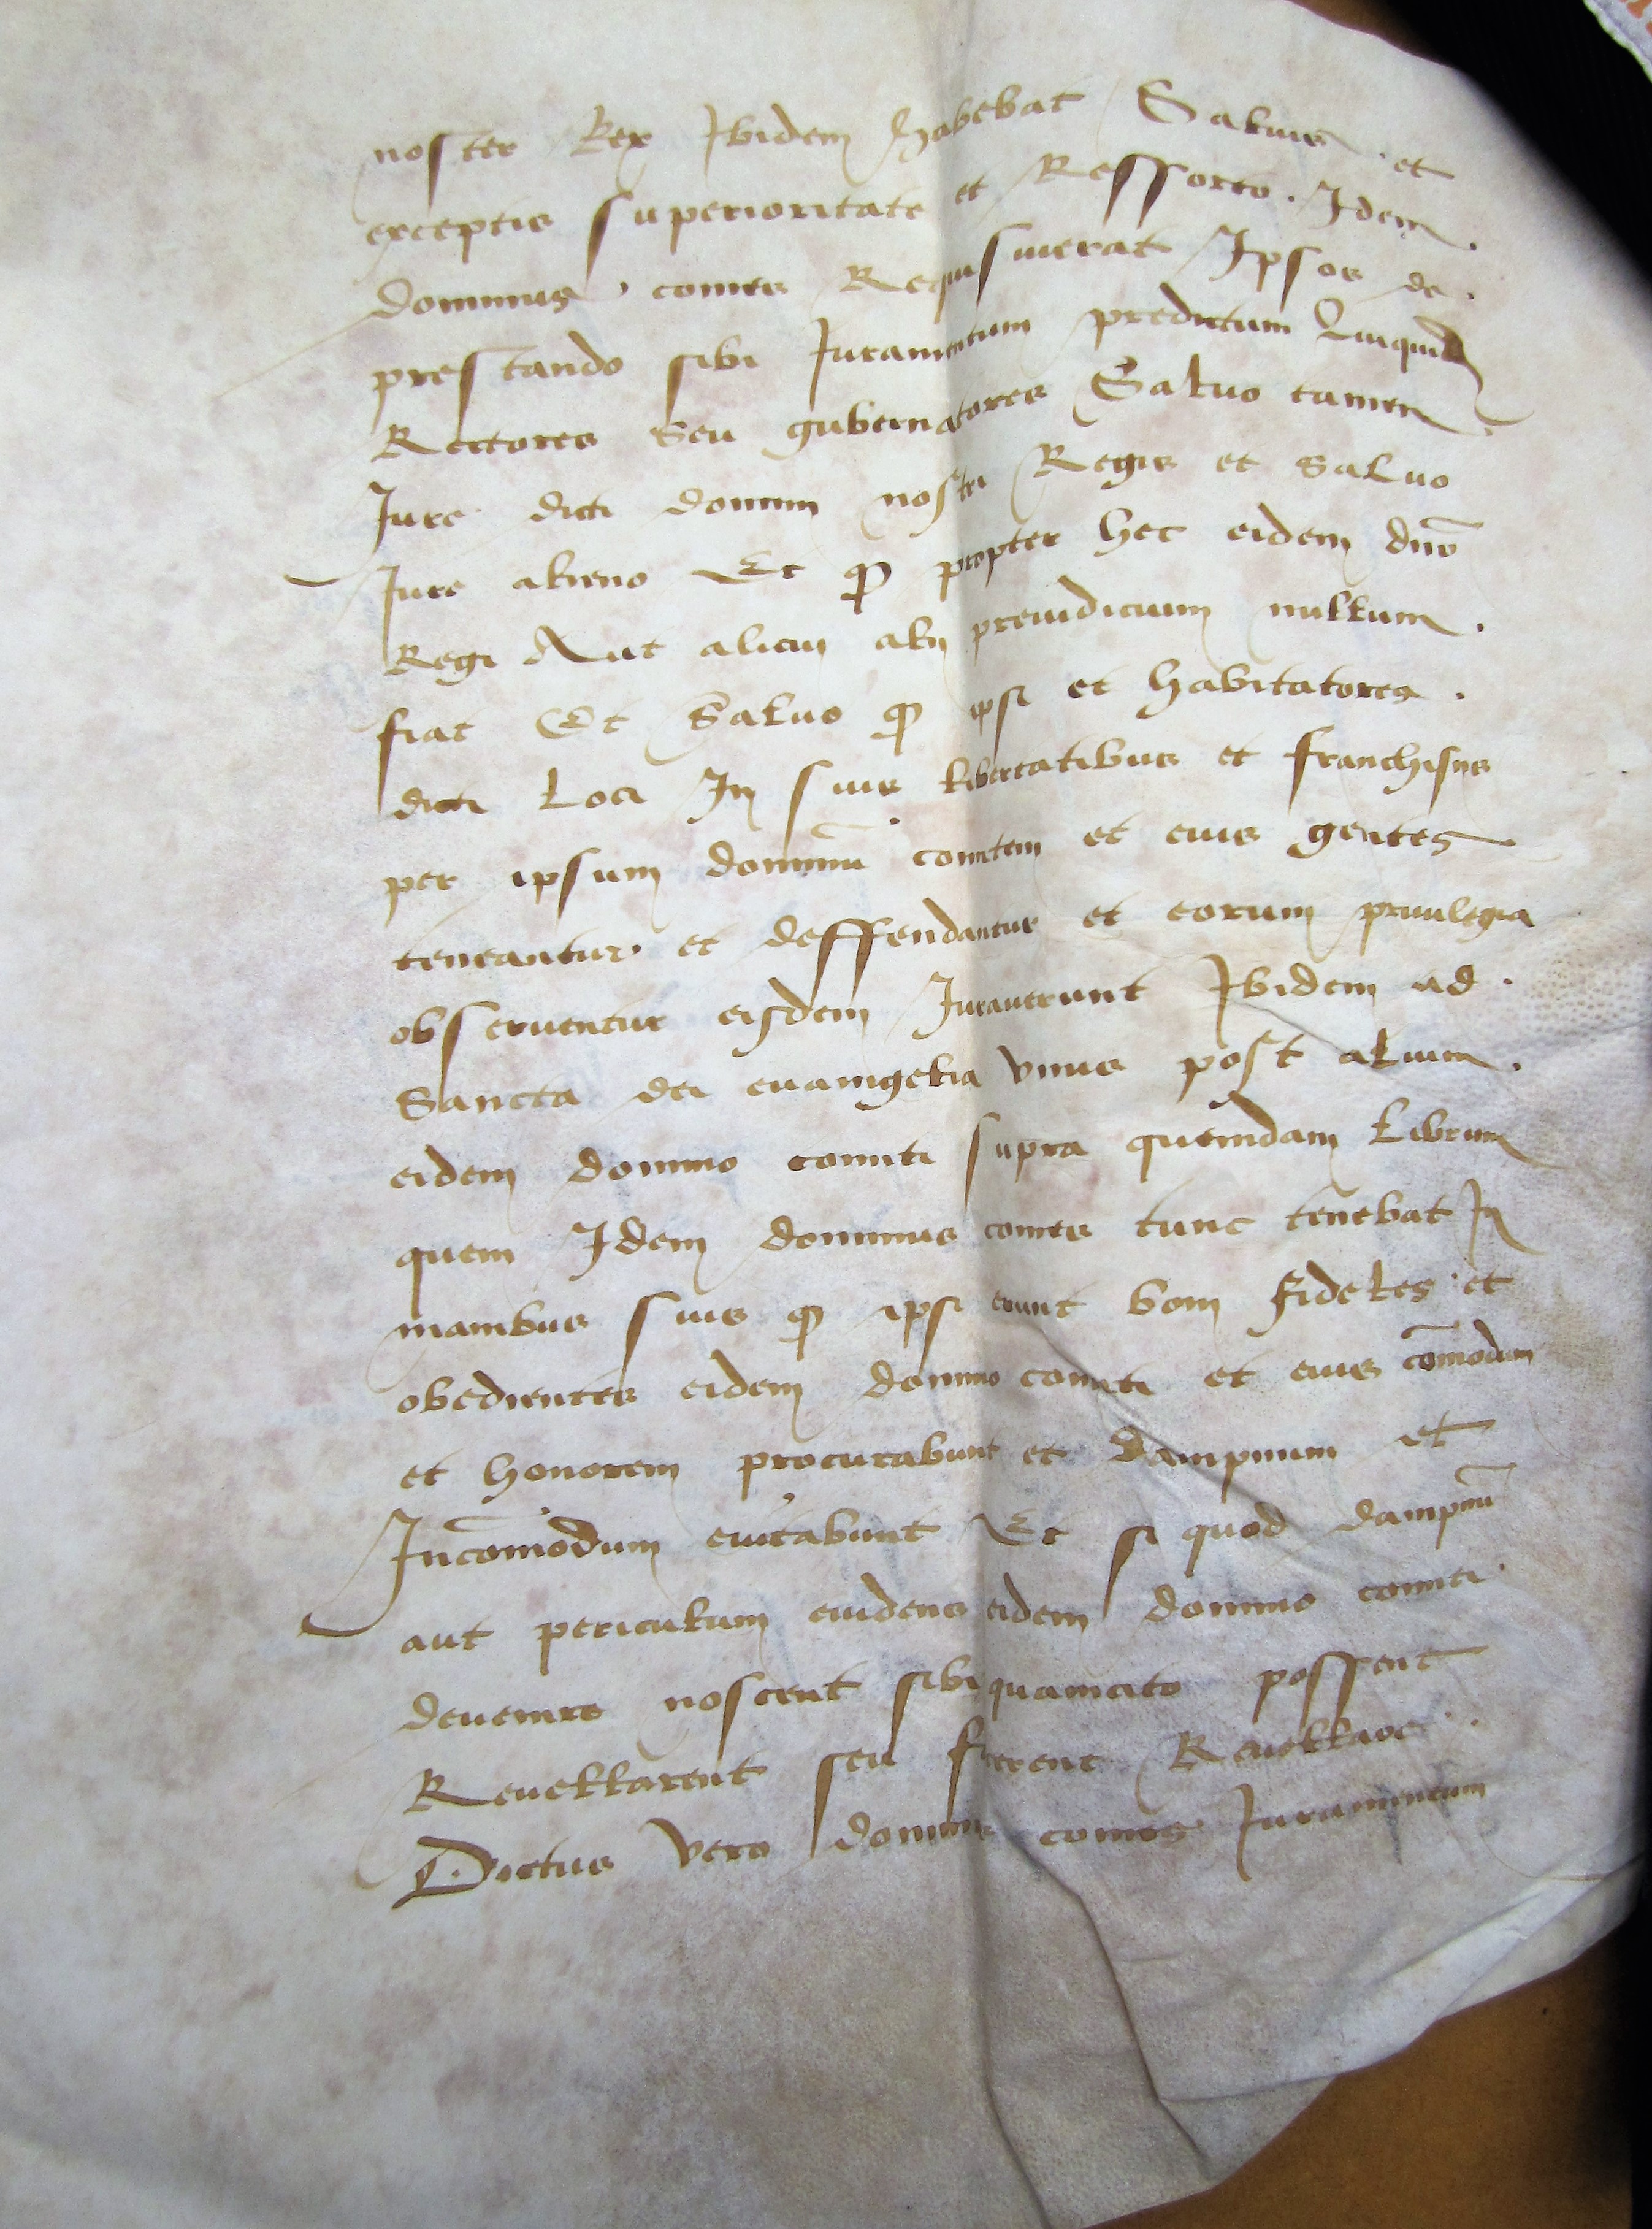 noster Rex Ibidem habebat Saluis et
exceptis superioritate et Ressorto. Idem.
dominus comes Requisiuerat Ipsos de.
prestando sibi Iuramentum predictum Quiquid
Rectores seu gubernatores Saluo tamen
Iure dicti domini nostri Regis et saluo
Iure alieno Et ꝙ propter hec eidem dño
Regi Aut alicui alij preiudicium nullum.
fiat Et Saluo ꝙ ipsi et habitatores.
dicti Loci In suis libertatibus et franchisiis
per ipsum dominũ comitem et eius gentes
teneantur et deffendantur et eorum priuilegia
obseruentur eisdem Iurauerunt Ibidem ad.
Sancta dei euangelia vnus post alium.
eidem domino comiti supra quemdam Librum
quem Idem dominus comes tunc tenebat In
manibus suis ꝙ ipsi erunt boni fideles et
obedientes eidem domino comiti et eius cõmodum
et honorem procurabunt et dampnum et
Incõmodum euitabunt Et si quod dampnũ
aut periculum euidens eidem domino comiti
deuenire noscent sibi quamcito possent
Reuellarent seu facerent Reuellare..
Dictus vero dominus comes Iuramentum